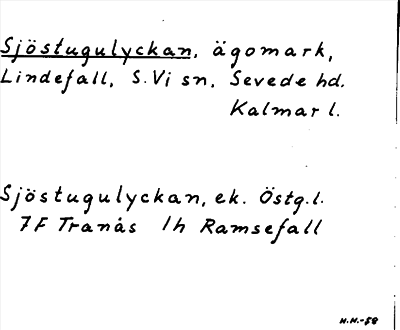 Sjöstugulyckan, ägomark,
Lindefall, S. Vi sn, Sevede hd.
Kalmar l.
Sjöstugulyckan, ek. Östg. l.
7F Tranås 1h Ramsefall
H.H.-58